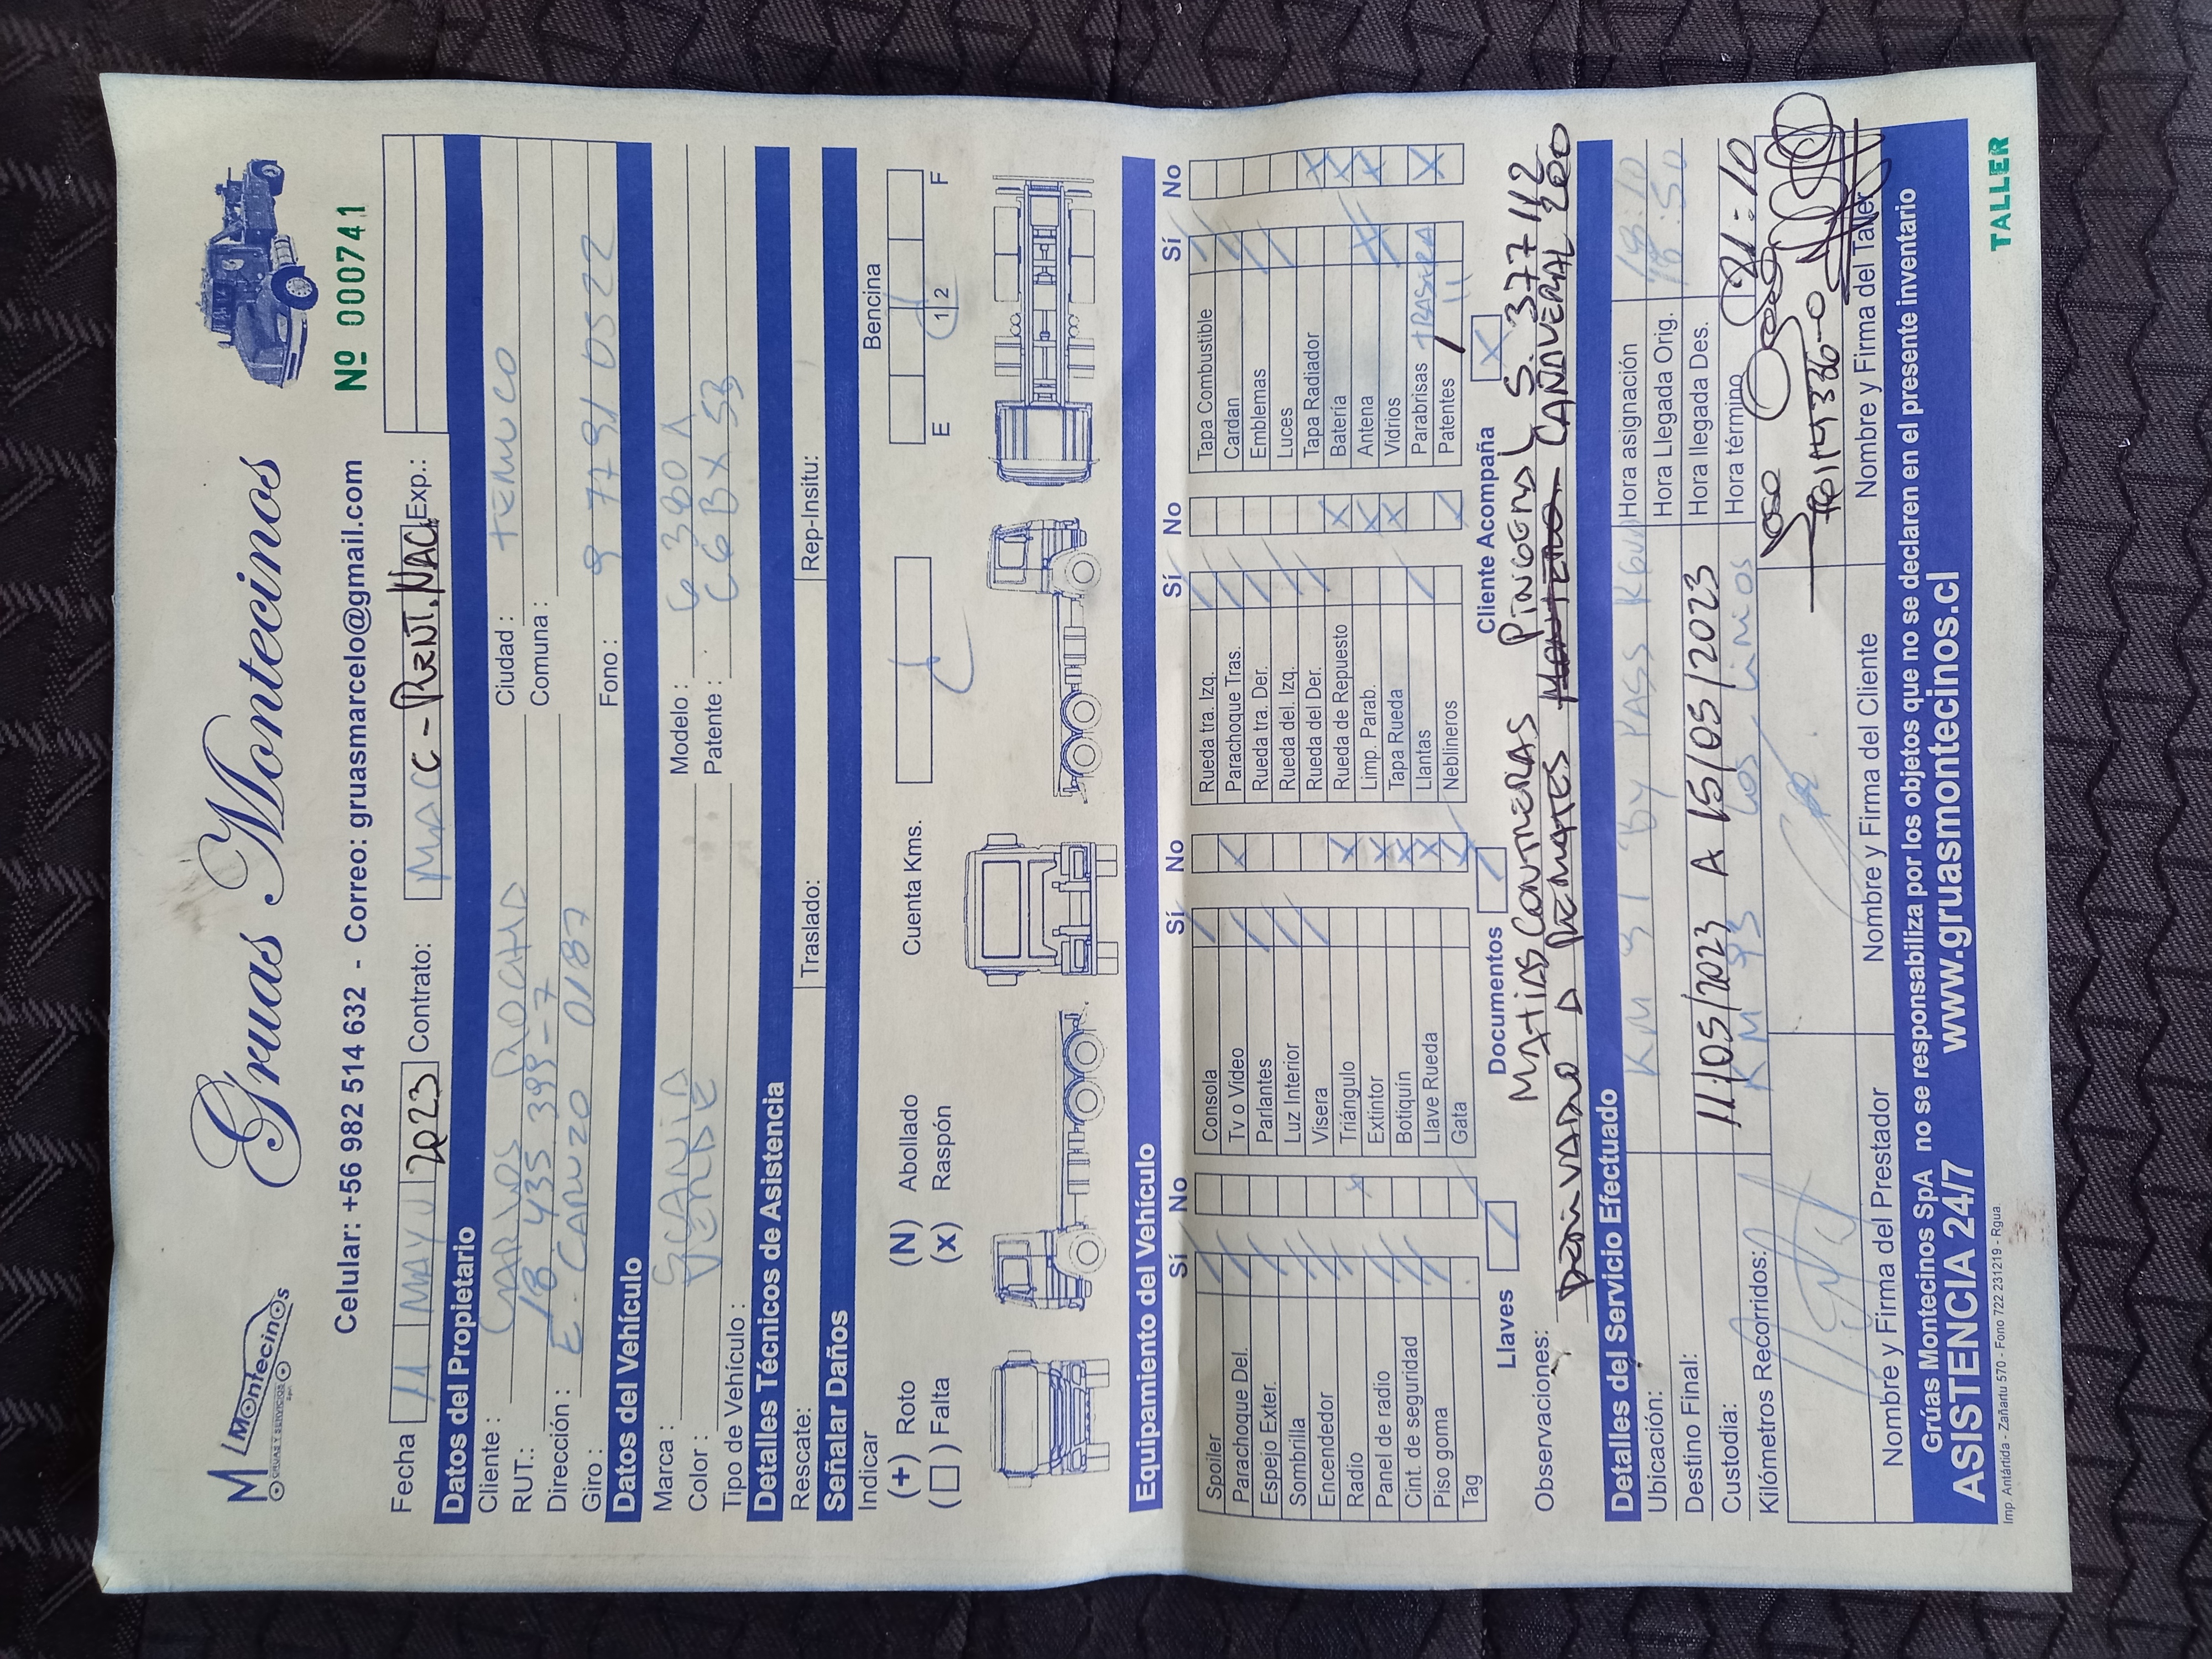 M Montecinos
GRUAS Y SERVICIOS
Gruas Montecinos
Celular: +56 982 514 632 - Correo: gruasmarcelo@gmail.com
Nº 000741
Fecha 11 MAYO 2023 Contrato: MACC - Exp.:
Datos del Propietario
Cliente: CARLOS ROCHA Ciudad: TEMUCO
RUT.: 18 435 399-7 Comuna:
Dirección: E. CARUZO 0187
Giro: Fono: 9 7791 0522
Datos del Vehículo
Marca: SCANIA Modelo: G 380 A
Color: VERDE Patente: CGBX 53
Tipo de Vehículo:
Detalles Técnicos de Asistencia
Rescate: Traslado: Rep-Insitu:
Señalar Daños
Indicar
(+) Roto (N) Abollado Cuenta Kms. Bencina
(□) Falta (x) Raspón E 1 2 F
Equipamiento del Vehículo
Sí No Sí No Sí No Sí No
Spoiler Consola Rueda tra. Izq. Tapa Combustible
Parachoque Del. Tv o Video Parachoque Tras. Cardan
Espejo Exter. Parlantes Rueda tra. Der. Emblemas
Sombrilla Luz Interior Rueda del. Izq. Luces
Encendedor Visera Rueda del Der. Tapa Radiador
Radio Triángulo Rueda de Repuesto Batería
Panel de radio Extintor Limp. Parab. Antena
Cint. de seguridad Botiquín Tapa Rueda Vidrios
Piso goma Llave Rueda Llantas Parabrisas TRASERA
Tag Gata Neblineros Patentes 11
Llaves Documentos Cliente Acompaña
Observaciones: MATIAS CONTRERAS S. 377-112
DERIVADO A REMATES CAÑAVERAL 200
Detalles del Servicio Efectuado
Ubicación: KM 91 BY PASS Hora asignación
Destino Final: Hora Llegada Orig.
Custodia: 11/05/2023 A 15/05/2023 Hora llegada Des.
Kilómetros Recorridos: KM 93 LOS LIRIOS Hora término 21:10
Nombre y Firma del Prestador Nombre y Firma del Cliente Nombre y Firma del Taller
Grúas Montecinos SpA no se responsabiliza por los objetos que no se declaren en el presente inventario
ASISTENCIA 24/7 www.gruasmontecinos.cl
Imp Antártida - Zañartu 570 - Fono 722 231219 - Rgua.
TALLER